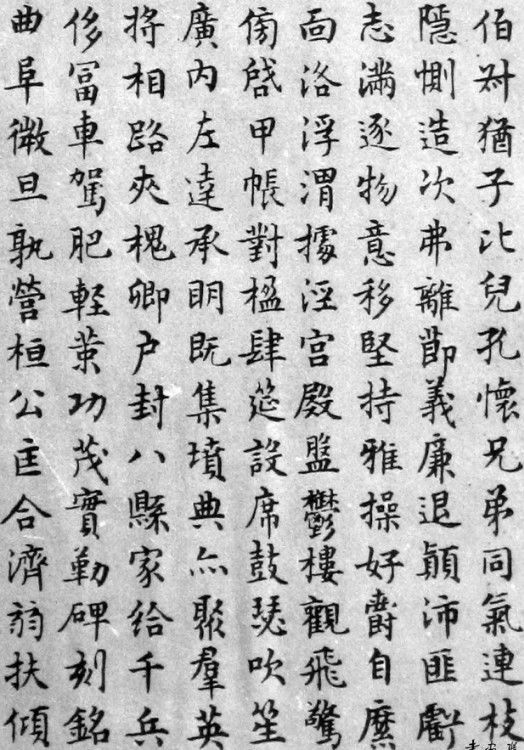 伯叔猶子比兒孔懷兄弟同氣連枝
隱惻造次弗離節義廉退顛沛匪虧
志滿逐物意移堅持雅操好爵自縻
面洛浮渭據涇宮殿盤鬱樓觀飛驚
傍啓甲帳對楹肆筵設席鼓瑟吹笙
廣內左達承明既集墳典亦聚羣英
將相路夾槐卿戶封八縣家給千兵
侈冨車駕肥輕策功茂實勒碑刻銘
曲阜微旦孰營桓公匡合濟弱扶傾